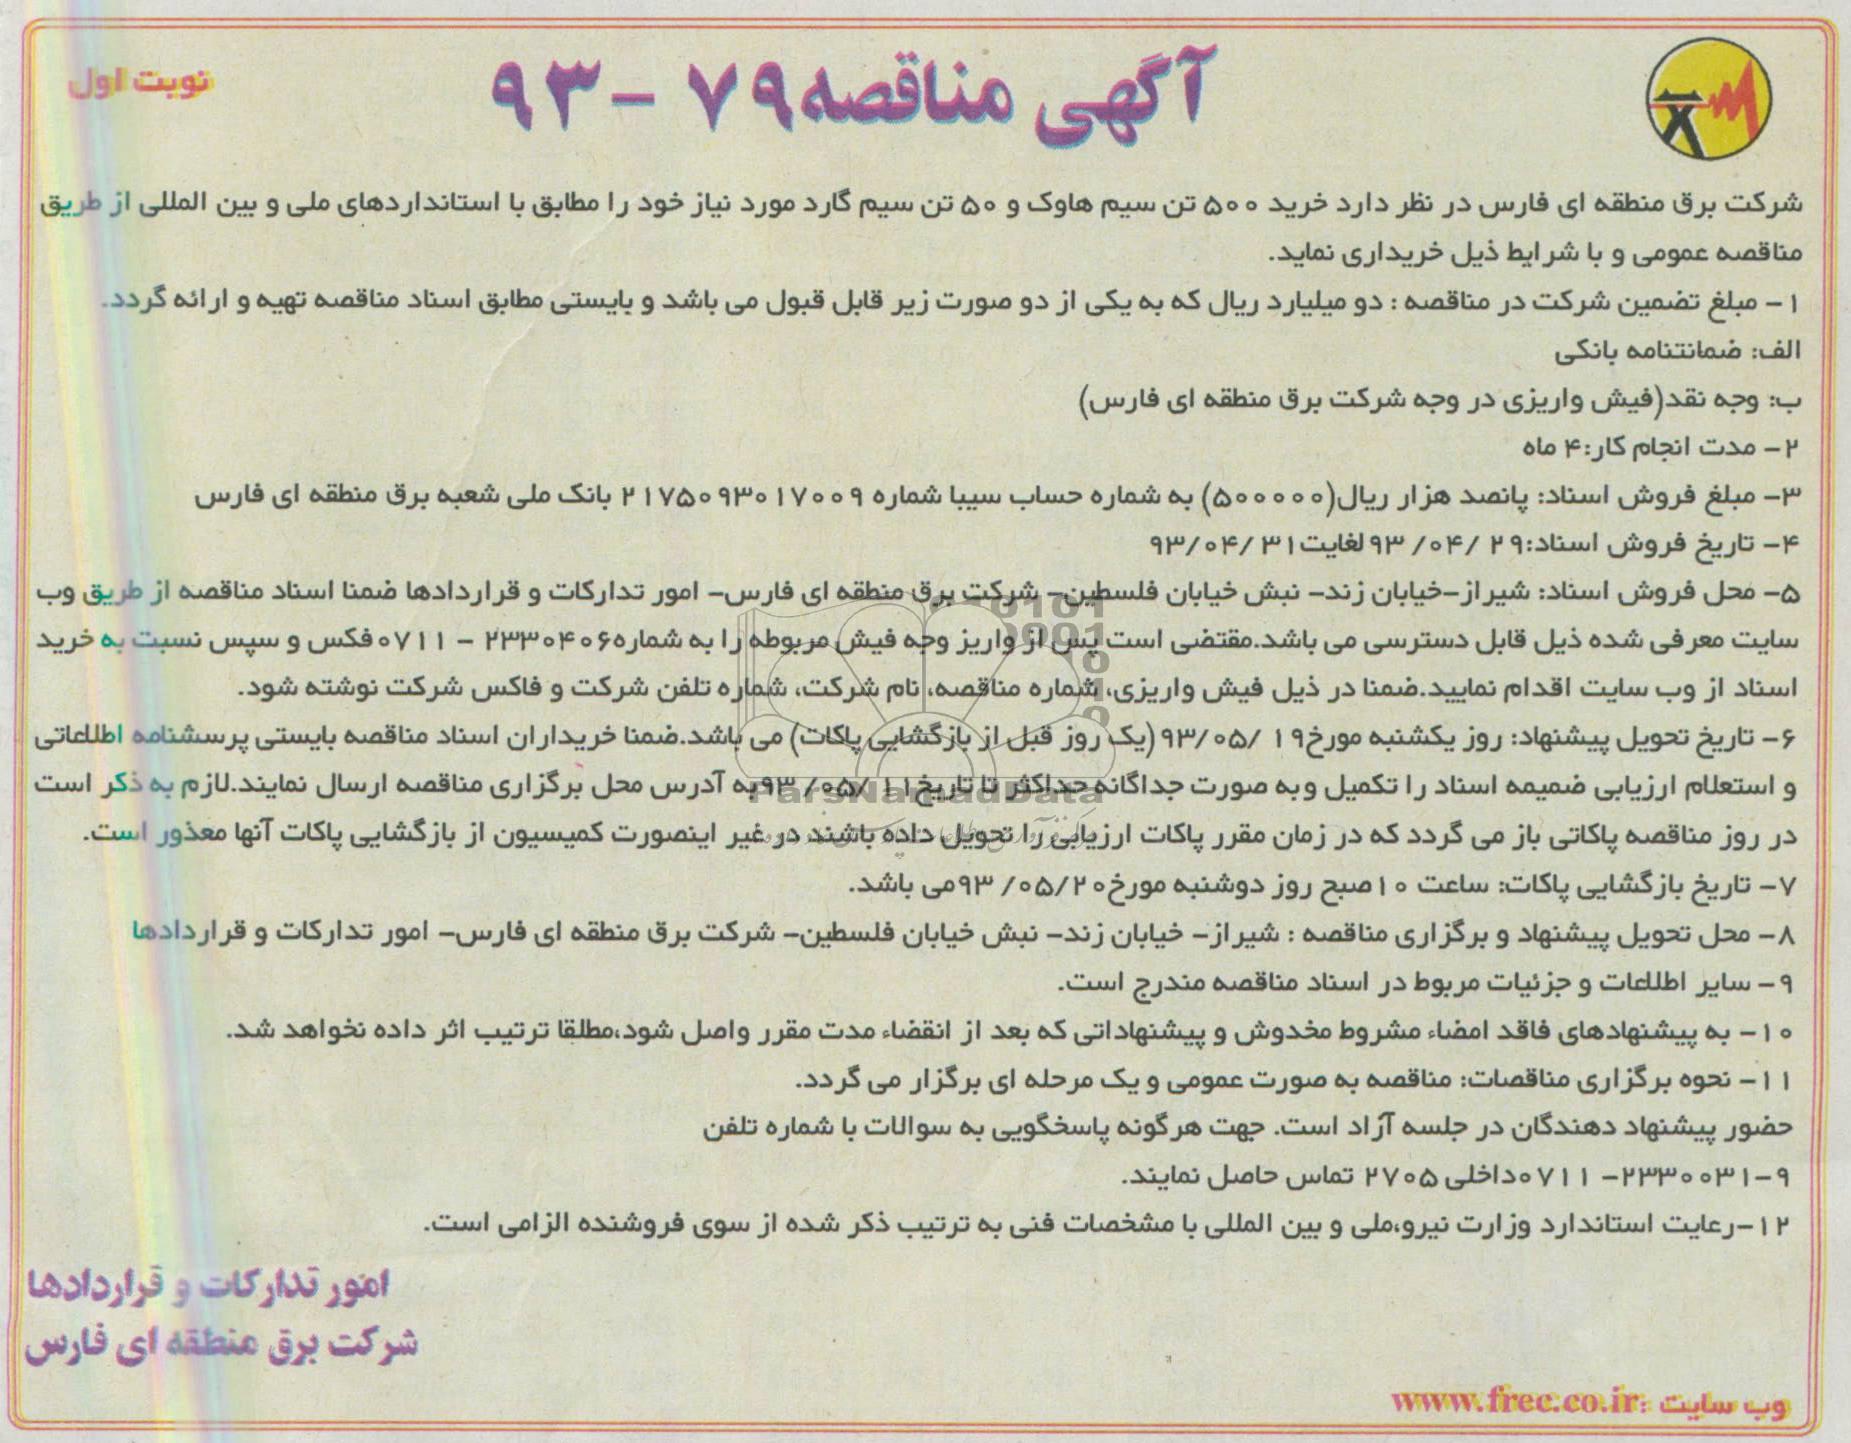 آگهی مناقصه ۷۹ - ۹۳
نوبت اول
شرکت برق منطقه ای فارس در نظر دارد خرید ۵۰۰ تن سیم هاوک و ۵۰ تن سیم گارد مورد نیاز خود را مطابق با استانداردهای ملی و بین المللی از طریق
مناقصه عمومی و با شرایط ذیل خریداری نماید.
۱- مبلغ تضمین شرکت در مناقصه : دو میلیارد ریال که به یکی از دو صورت زیر قابل قبول می باشد و بایستی مطابق اسناد مناقصه تهیه و ارائه گردد.
الف: ضمانتنامه بانکی
ب: وجه نقد(فیش واریزی در وجه شرکت برق منطقه ای فارس)
۲- مدت انجام کار:۴ ماه
۳- مبلغ فروش اسناد: پانصد هزار ریال(۵۰۰۰۰۰) به شماره حساب سیبا شماره ۲۱۷۵۰۹۳۰۱۷۰۰۹ بانک ملی شعبه برق منطقه ای فارس
۴- تاریخ فروش اسناد:۲۹ /۰۴/ ۹۳ لغایت۳۱ /۹۳/۰۴
۵- محل فروش اسناد: شیراز-خیابان زند- نبش خیابان فلسطین- شرکت برق منطقه ای فارس- امور تدارکات و قراردادها ضمنا اسناد مناقصه از طریق وب
سایت معرفی شده ذیل قابل دسترسی می باشد.مقتضی است پس از واریز وجه فیش مربوطه را به شماره۲۳۳۰۴۰۶ - ۰۷۱۱فکس و سپس نسبت به خرید
اسناد از وب سایت اقدام نمایید.ضمنا در ذیل فیش واریزی، شماره مناقصه، نام شرکت، شماره تلفن شرکت و فاکس شرکت نوشته شود.
۶- تاریخ تحویل پیشنهاد: روز یکشنبه مورخ۱۹ /۹۳/۰۵ (یک روز قبل از بازگشایی پاکات) می باشد.ضمنا خریداران اسناد مناقصه بایستی پرسشنامه اطلاعاتی
و استعلام ارزیابی ضمیمه اسناد را تکمیل وبه صورت جداگانه حداکثر تا تاریخ۱۱ /۰۵/ ۹۳به آدرس محل برگزاری مناقصه ارسال نمایند.لازم به ذکر است
در روز مناقصه پاکاتی باز می گردد که در زمان مقرر پاکات ارزیابی را تحویل داده باشند در غیر اینصورت کمیسیون از بازگشایی پاکات آنها معذور است.
۷- تاریخ بازگشایی پاکات: ساعت ۱۰صبح روز دوشنبه مورخ۰۵/۲۰/ ۹۳می باشد.
۸- محل تحویل پیشنهاد و برگزاری مناقصه : شیراز- خیابان زند- نبش خیابان فلسطین- شرکت برق منطقه ای فارس- امور تدارکات و قراردادها
۹- سایر اطلاعات و جزئیات مربوط در اسناد مناقصه مندرج است.
۱۰- به پیشنهادهای فاقد امضاء مشروط مخدوش و پیشنهاداتی که بعد از انقضاء مدت مقرر واصل شود،مطلقا ترتیب اثر داده نخواهد شد.
۱۱- نحوه برگزاری مناقصات: مناقصه به صورت عمومی و یک مرحله ای برگزار می گردد.
حضور پیشنهاد دهندگان در جلسه آزاد است. جهت هرگونه پاسخگویی به سوالات با شماره تلفن
۹-۲۳۳۰۰۳۱- ۰۷۱۱داخلی ۲۷۰۵ تماس حاصل نمایند.
۱۲-رعایت استاندارد وزارت نیرو،ملی و بین المللی با مشخصات فنی به ترتیب ذکر شده از سوی فروشنده الزامی است.
امور تدارکات و قراردادها
شرکت برق منطقه ای فارس
وب سایت :www.frec.co.ir
ParsNamadData